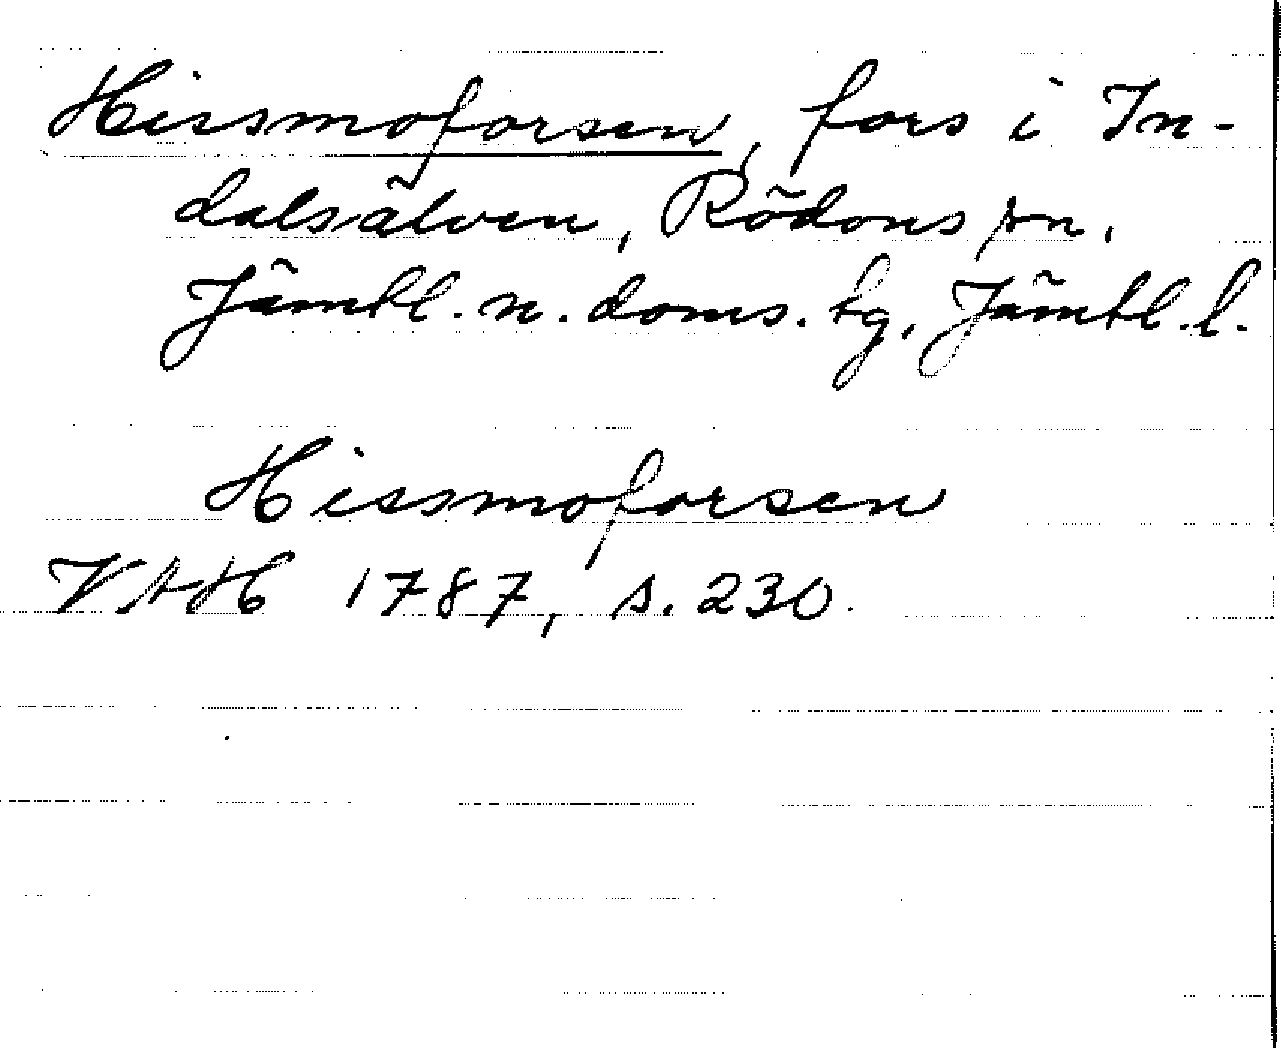 Hissmoforsen, fors i In-
dalsälven, Rödöns sn.
Jämtl. n. doms. tg, Jämtl. l.
Hissmoforsen
VAH 1787, s. 230.